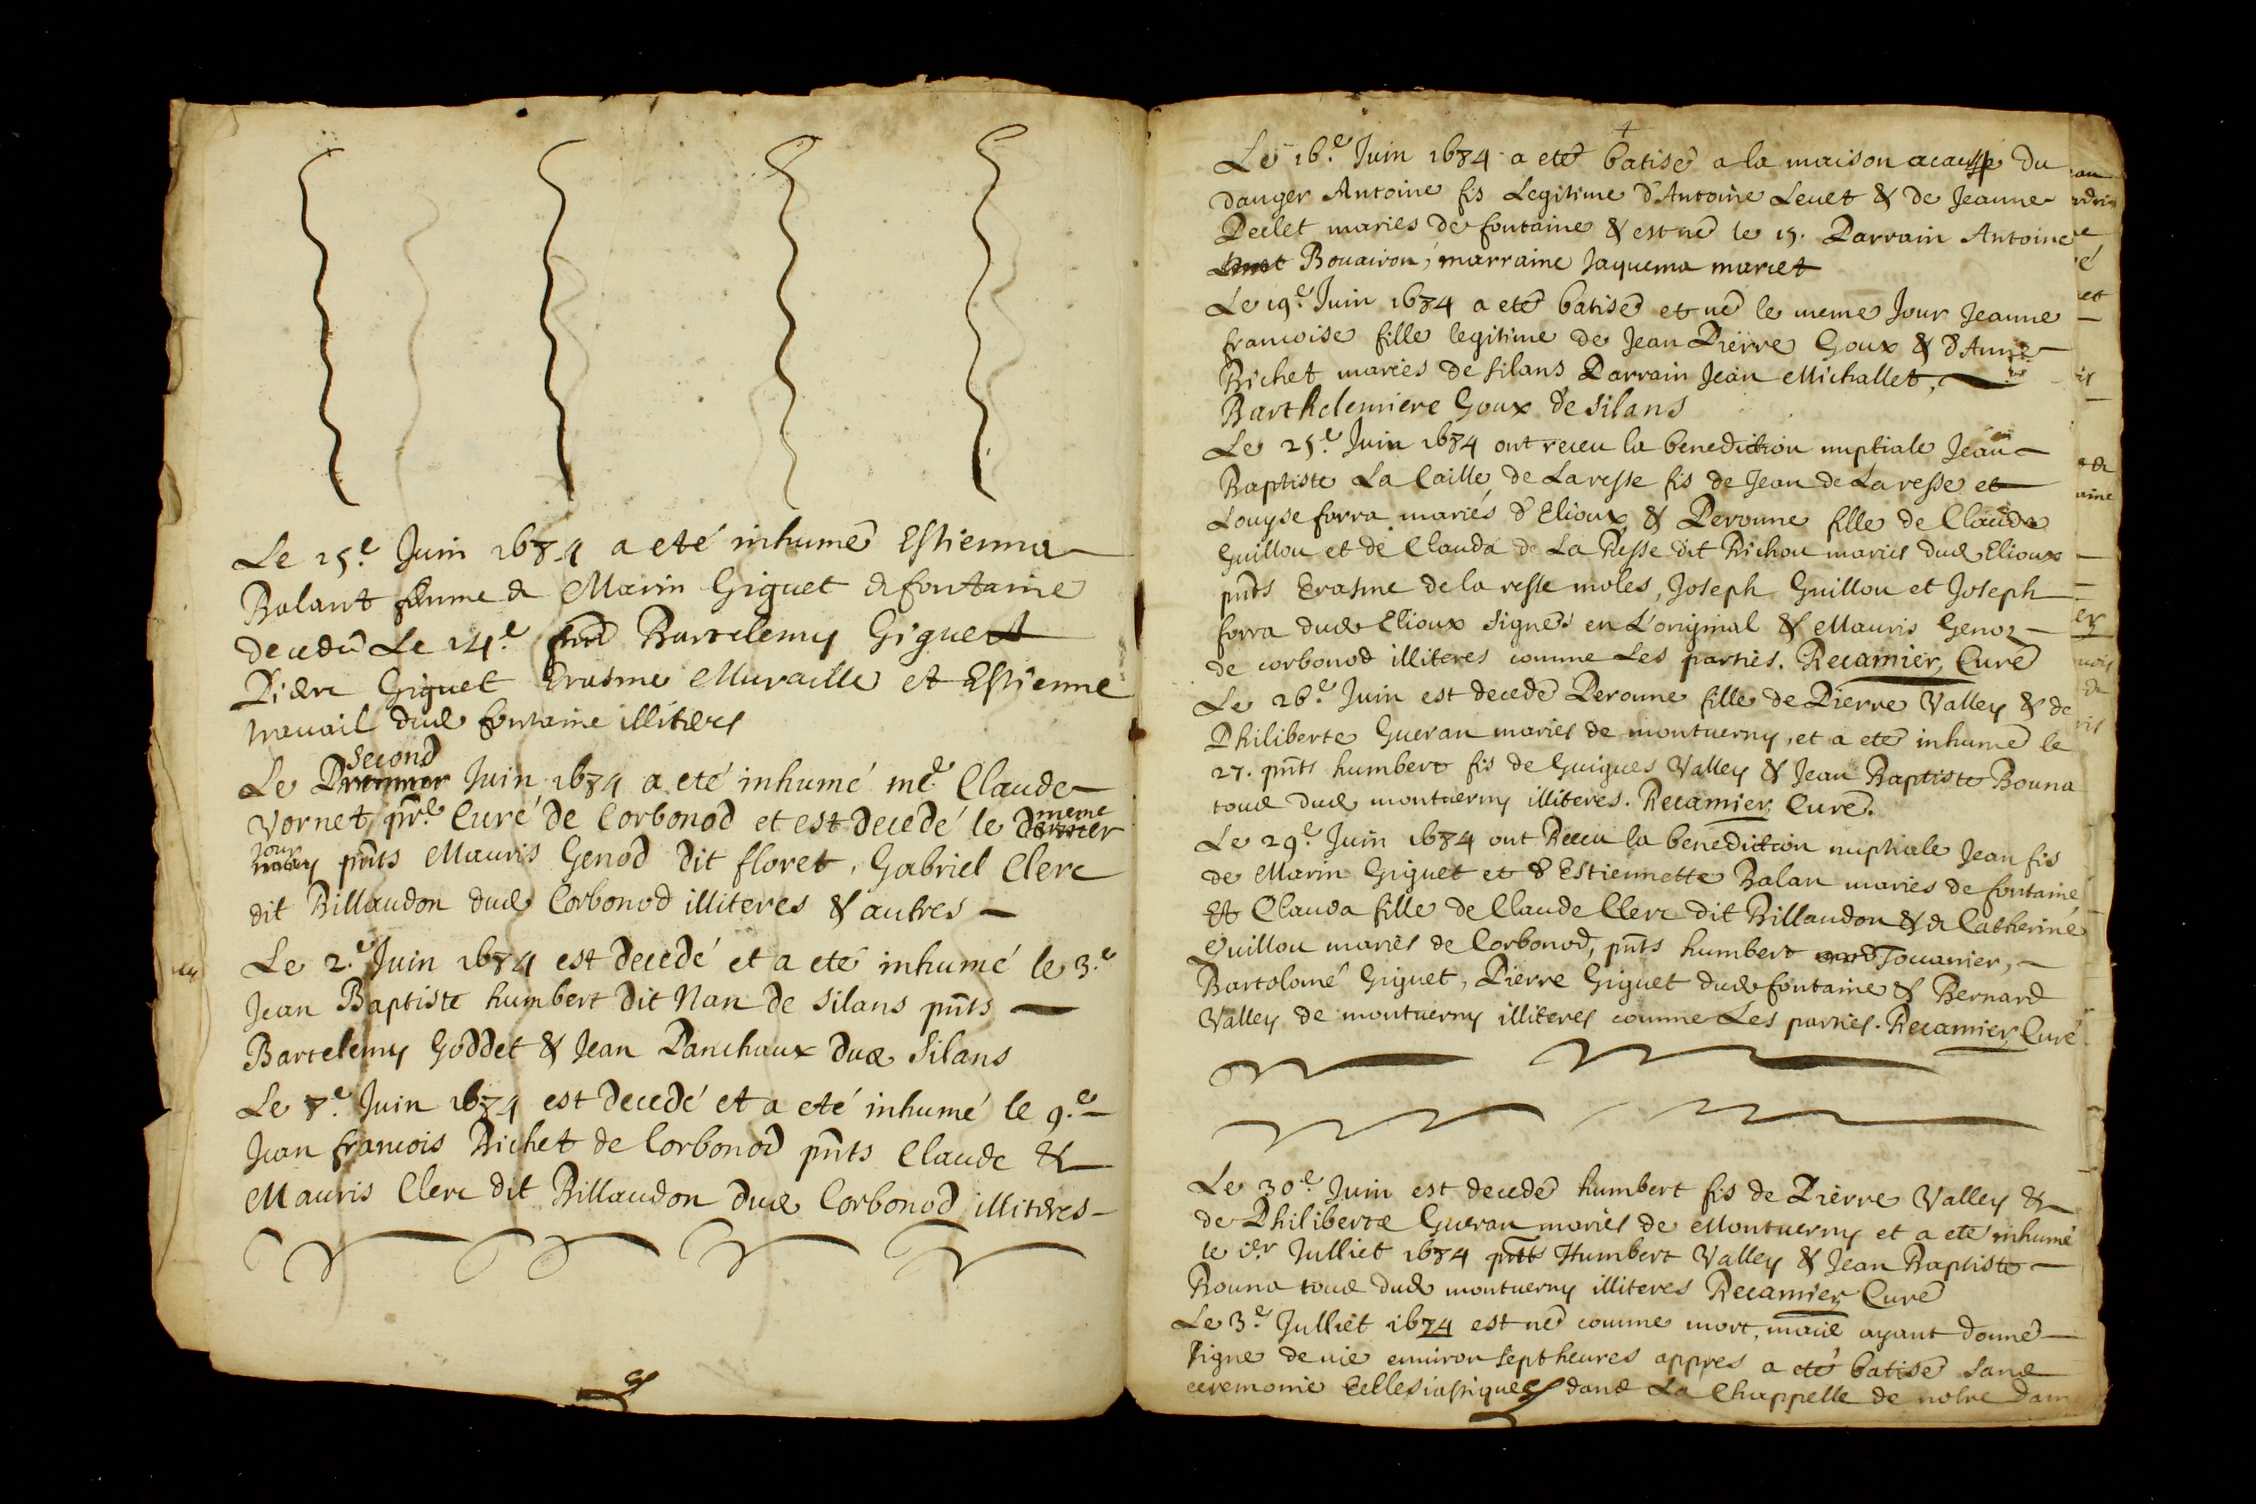 Le 15.e Juin 1684 a eté inhumé Estienna
Balant femme de Marin Giguet de fontaine
decedû Le 14.e Barcelemy Giguet
Pierre Giguet Erasme Muraille et Estienne
travail dud fontaine illiteres
second
Le Premier Juin 1684 a eté inhumé mre Claude
Vornet, pre. Curé de Corbonod et est decedé le dernier meme
jour may pnts Mauris Genod dit floret, Gabriel Clerc
dit Billaudon dud Corbonod illiteres & autres
Le 2.e Juin 1684 est decedé et a eté inhumé le 3.e
Jean Baptiste humbert dit Nan de Silans pnts
Barcelemy Goddet & Jean Panchaux dud Silans
Le 8.e Juin 1684 est decedé et a eté inhumé le 9.e
Jean francois Richet de Corbonod pnts Claude &
Mauris Clerc dit Billaudon dud Corbonod illiteres
Le 16.e Juin 1684 a eté batisé a la maison acausse du
danger Antoine fis Legitime d'Antoine Levet & de Jeanne
Peclet maries de fontaine & est né le 15. Parrain Antoine
Bouairon, marraine Jaquema mariet
Le 19.e Juin 1684 a eté batisé et né le meme Jour Jeanne
francoise fille legitime de Jean Pierre Goux & d'Anne
Richet maries de silans Parrain Jean Michallet,
Barthelemiere Goux de silans
Le 25.e Juin 1684 ont receu la benediction nuptiale Jean
Baptiste La Caille de Laresse fis de Jean de Laresse et
Louyse forra mariés d'Elioux & Peronne fille de Clauda
Guillou et de Clauda de La Resse dit Richou maries dud Elioux
pnts Erasme de la resse moles, Joseph Guillou et Joseph
forra dud Elioux signés en L'original & Mauris Genoz
de corbonod illiteres comme Les parties. Recamier, Curé
Le 26.e Juin est decedé Peronne fille de Pierre Valley & de
Philiberte Gueran maries de montverny, et a eté inhumé le
27. pnts humbert fis de Guigues Valley & Jean Baptiste Bouna
toud dud montverny illiteres. Recamier, Curé.
Le 29.e Juin 1684 ont Receu la benediction nuptiale Jean fis
de Marin Giguet et d'Estiennette Balan maries de fontaine
Et Clauda fille de Claude Clerc dit Billaudon & de Catherine
Guillou maries de Corbonod, pnts humbert Jouanier,
Bartolomé Giguet, Pierre Giguet dud fontaine & Bernard
Valley de montverny illiteres comme Les parties. Recamier, Curé
Le 30.e Juin est decedé humbert fis de Pierre Valley &
de Philiberte Gueran maries de Montverny et a eté inhumé
le ier Julliet 1684 pntt Humbert Valley & Jean Baptiste
Bouna toud dud montverny illiteres Recamier, Curé
Le 3.e Julliet 1684 est né comme mort, maiié ayant donné
signe de vie environ sept heures appres a eté batisé sand
ceremonie Ecclesiastiques dand La Chappelle de notre Dam